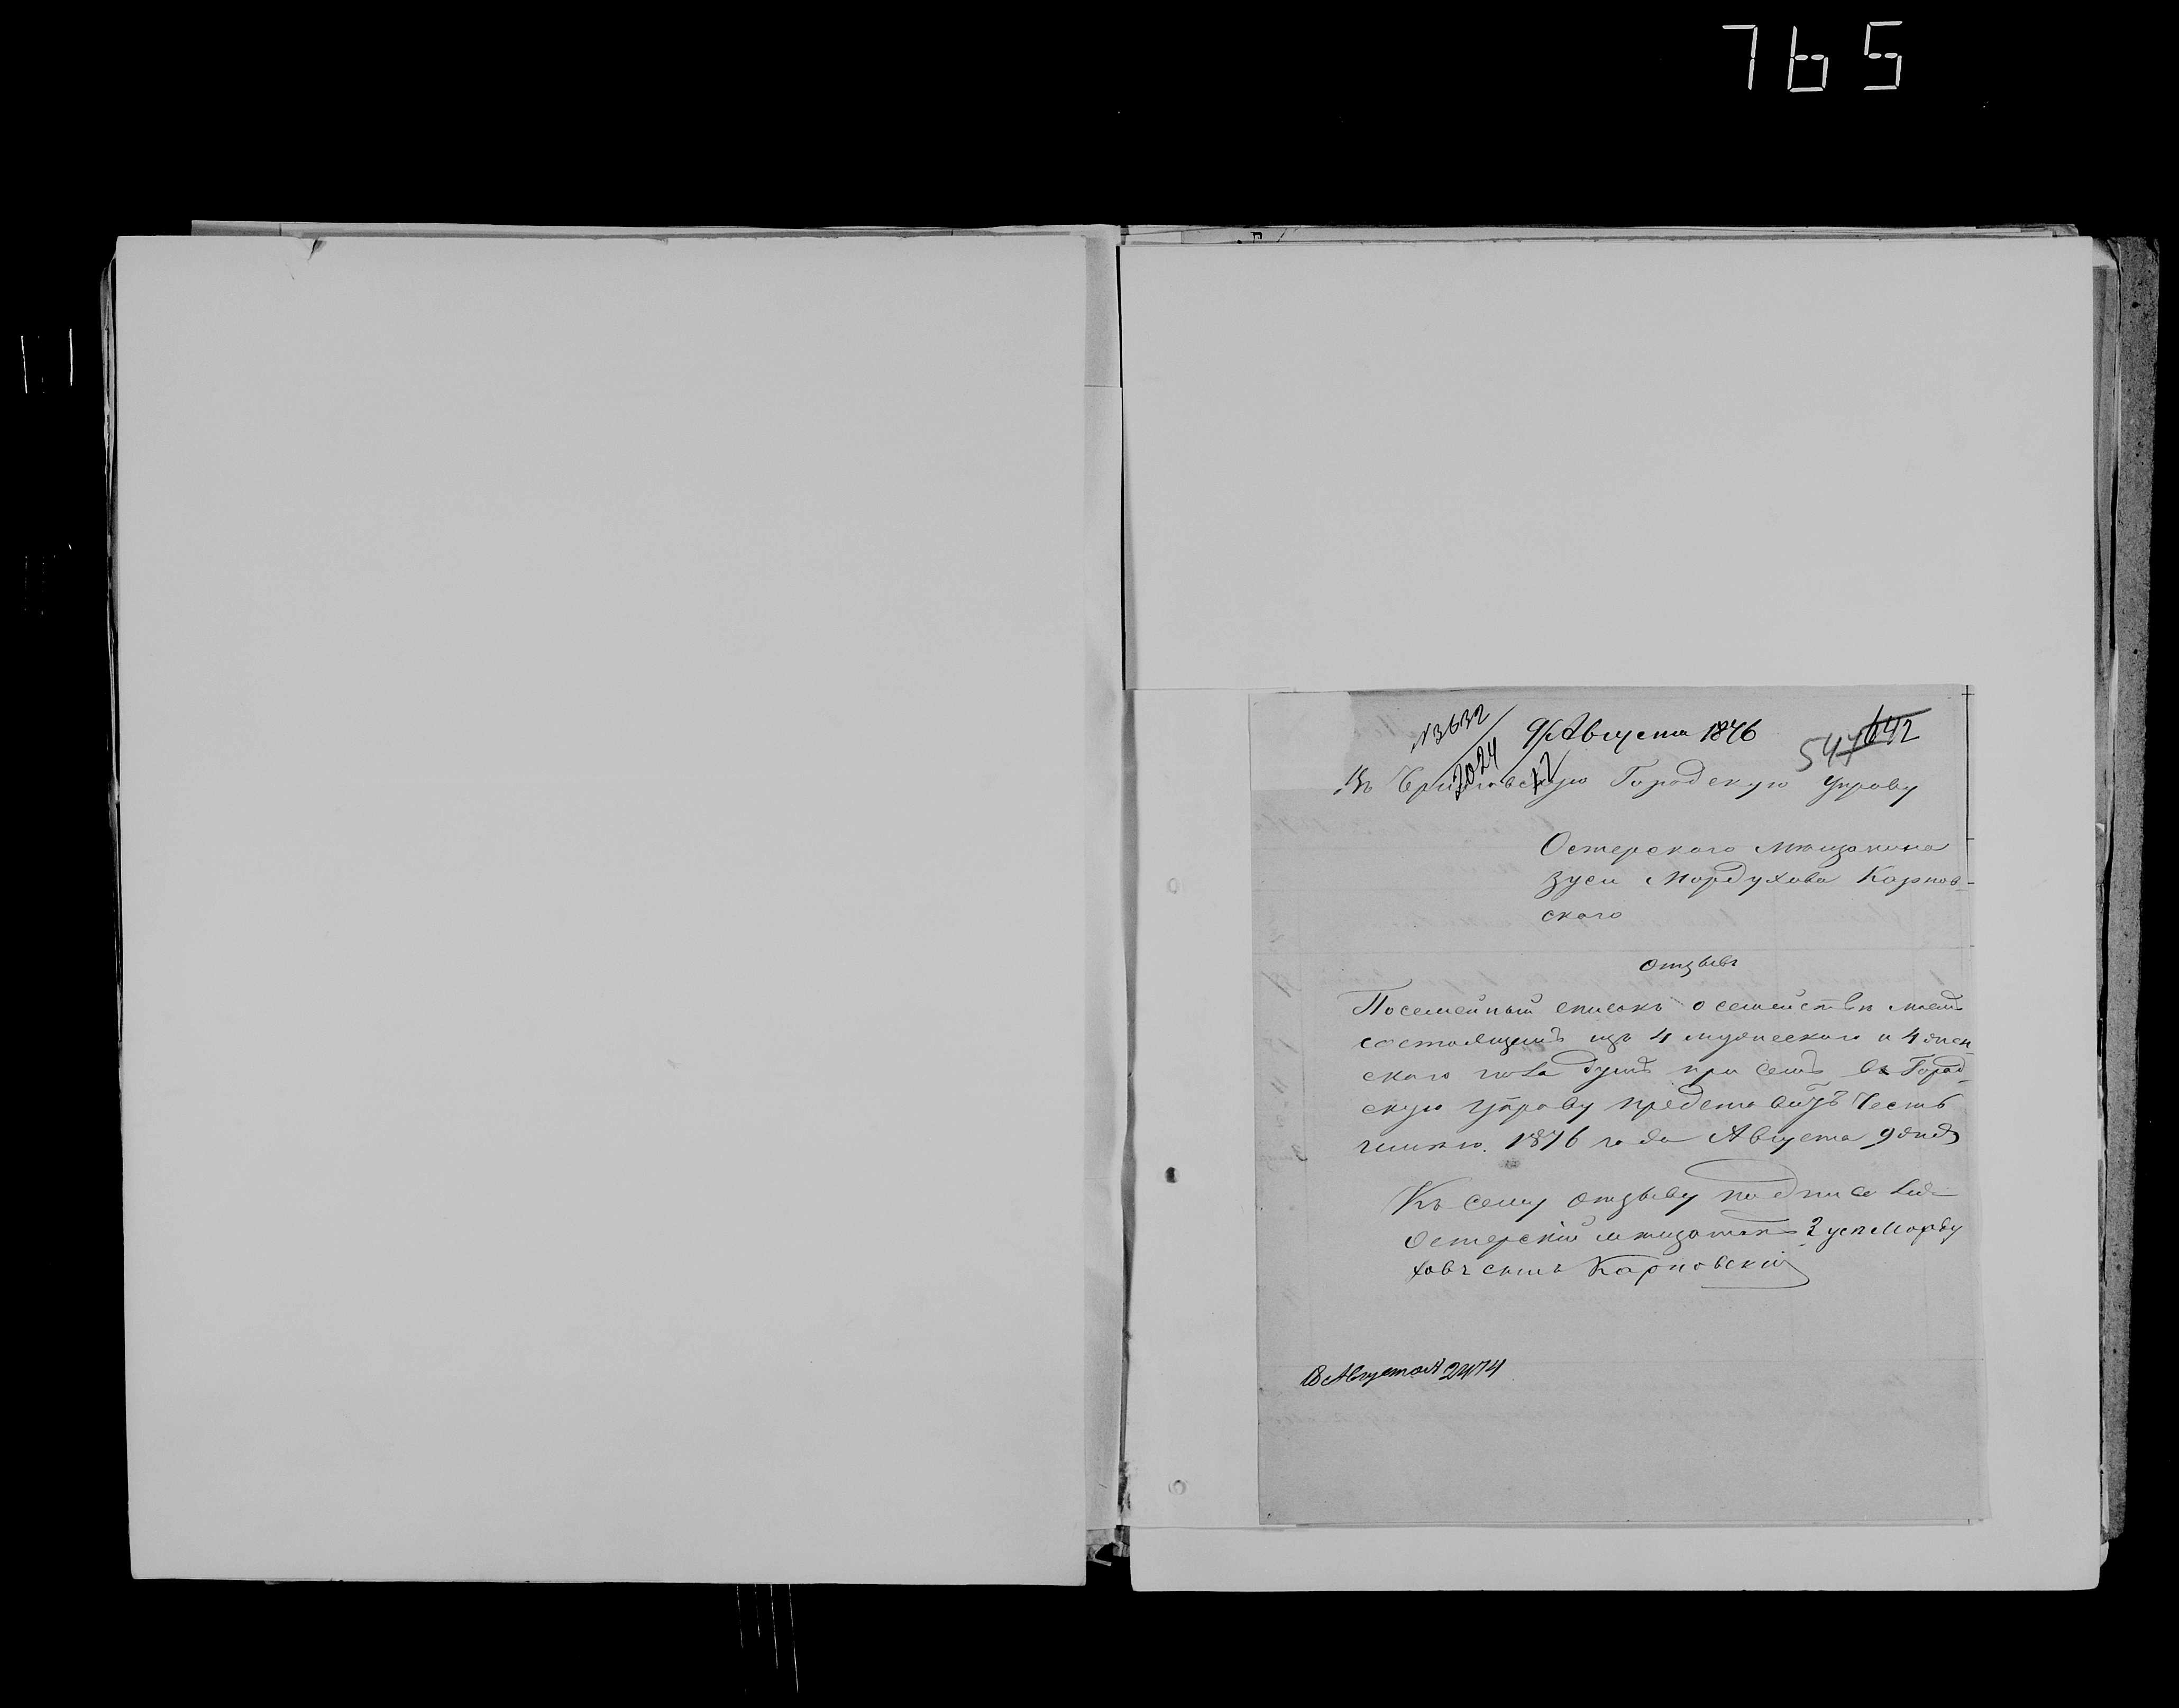 765
№3632
2024
9 Августа 1876
547 642
Въ Черниговскую Городскую Управу
Остерского мѣщанина
Зуси Мордухова Карнов-
ского
Отзывъ
Посемейный списокъ о семействѣ моемъ
состоящемъ изъ 4 мужеского и 4 жен
ского пола душъ при семъ въ Город-
скую Управу представить честь
имѣю. 1876 года Августа 9 дня
Къ сему отзыву подписался
Остерскій мѣщанинъ ЗусяМорду
ховъ сынъ Карновский
Августа 2474